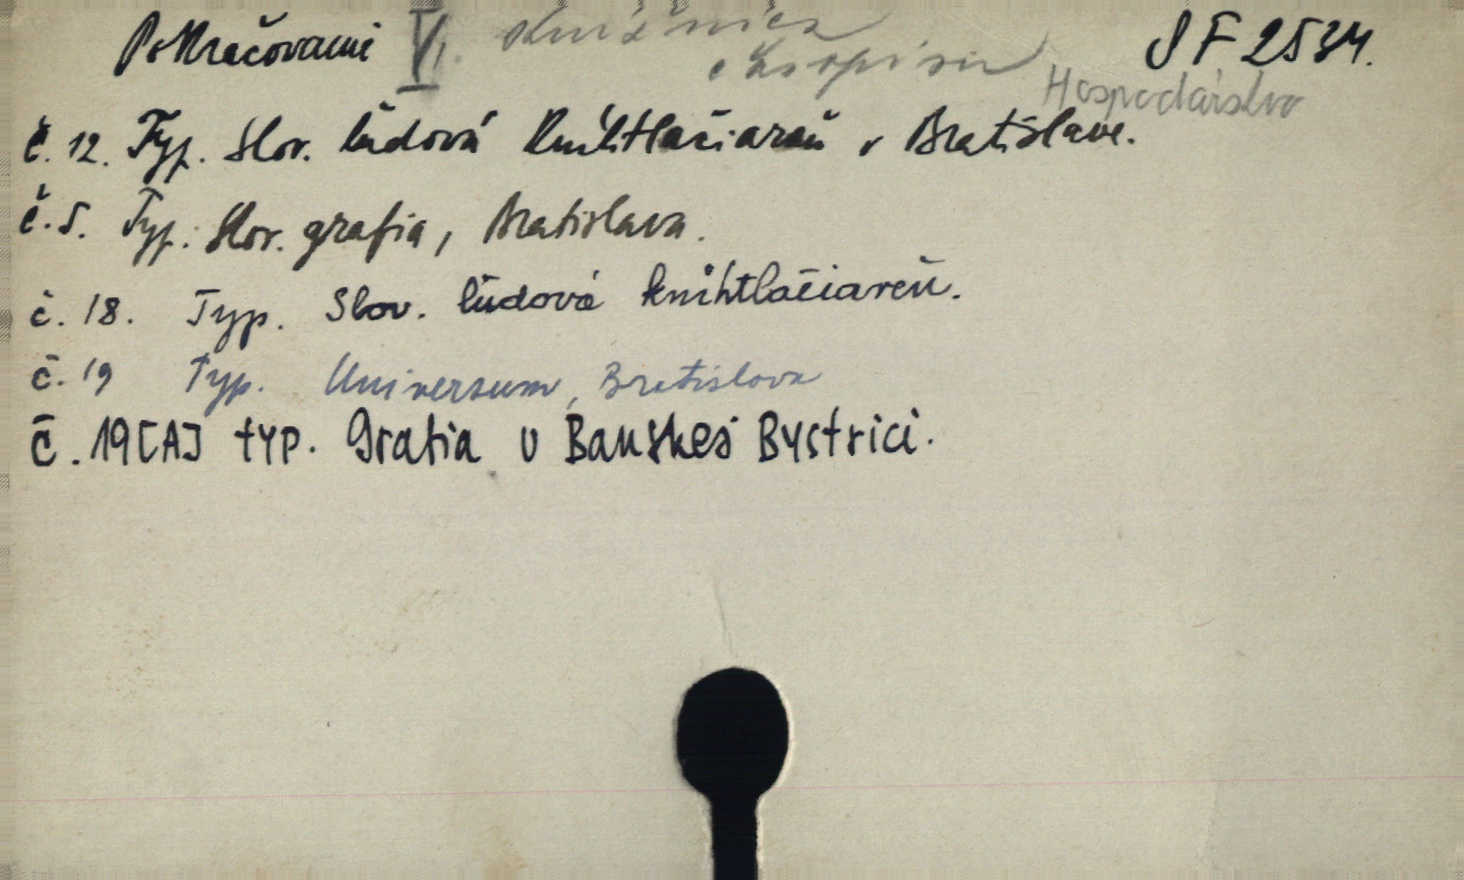 Pokračovanie VI. Knižnica SF 2534.
časopisu
Hospodárstvo
č. 12. Typ. Slov. ľudová kníhtlačiareň v Bratislave.
č. 5. Typ. Slov. grafia, Bratislava.
č. 18. Typ. Slov. ľudová kníhtlačiareň.
č. 19 Typ. Universum, Bratislava
č. 19[A] typ. Grafia v Banskej Bystrici.